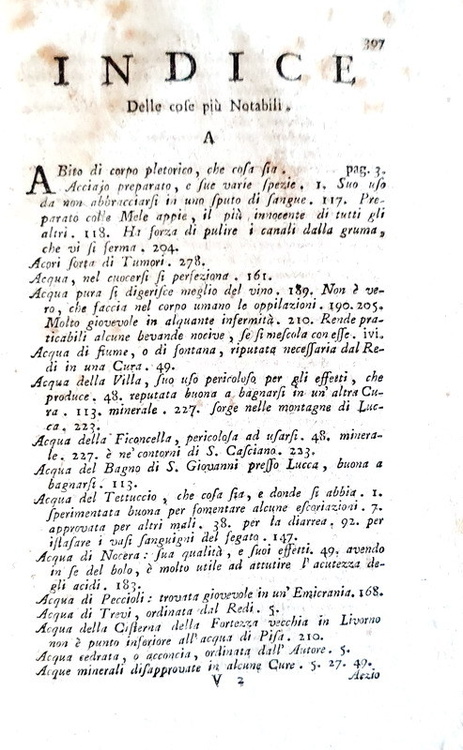 397
INDICE
Delle cose più Notabili.
A
ABito di corpo pletorico, che cosa sia. pag. 3.
Acciajo preparato, e sue varie spezie. 1. Suo uso
da non abbracciarsi in uno sputo di sangue. 117. Pre-
parato colle Mele appie, il più innocente di tutti gli
altri. 118. Ha forza di pulire i canali dalla gruma,
che vi si ferma. 294.
Acori sorta di Tumori. 278.
Acqua, nel cuocersi si perfeziona. 161.
Acqua pura si digerisce meglio del vino. 189. Non è ve-
ro, che faccia nel corpo umano le oppilazioni. 190. 205.
Molto giovevole in alquante infermità. 210. Rende pra-
ticabili alcune bevande nocive, se si mescola con esse. ivi.
Acqua di fiume, o di fontana, riputata necessaria dal Re-
di in una Cura. 49.
Acqua della Villa, suo uso pericoloso per gli effetti, che
produce. 48. reputata buona a bagnarsi in un'altra Cu-
ra. 113. minerale. 227. sorge nelle montagne di Luc-
ca. 223.
Acqua della Ficoncella, pericolosa ad usarsi. 48. minera-
le. 227. è ne' contorni di S. Casciano. 223.
Acqua del Bagno di S. Giovanni presso Lucca, buona a
bagnarsi. 113.
Acqua del Tettuccio, che cosa sia, e donde si abbia. 1.
sperimentata buona per fomentare alcune escoriazioni. 7.
approvata per altri mali. 38. per la diarrea. 92. per
istasare i vasi sanguigni del fegato. 147.
Acqua di Nocera: sua qualità, e suoi effetti. 49. avendo
in se del bolo, è molto utile ad attutire l'acutezza de-
gli acidi. 183.
Acqua di Peccioli: trovata giovevole in un' Emicrania. 168.
Acqua di Trevi, ordinata dal Redi. 5.
Acqua della Cisterna della Fortezza vecchia in Livorno
non è punto inferiore all'acqua di Pisa. 210.
Acqua cedrata, o acconcia, ordinata dall' Autore. 5.
Acque minerali disapprovate in alcune Cure. 5. 27. 49.
V 2 Aezio